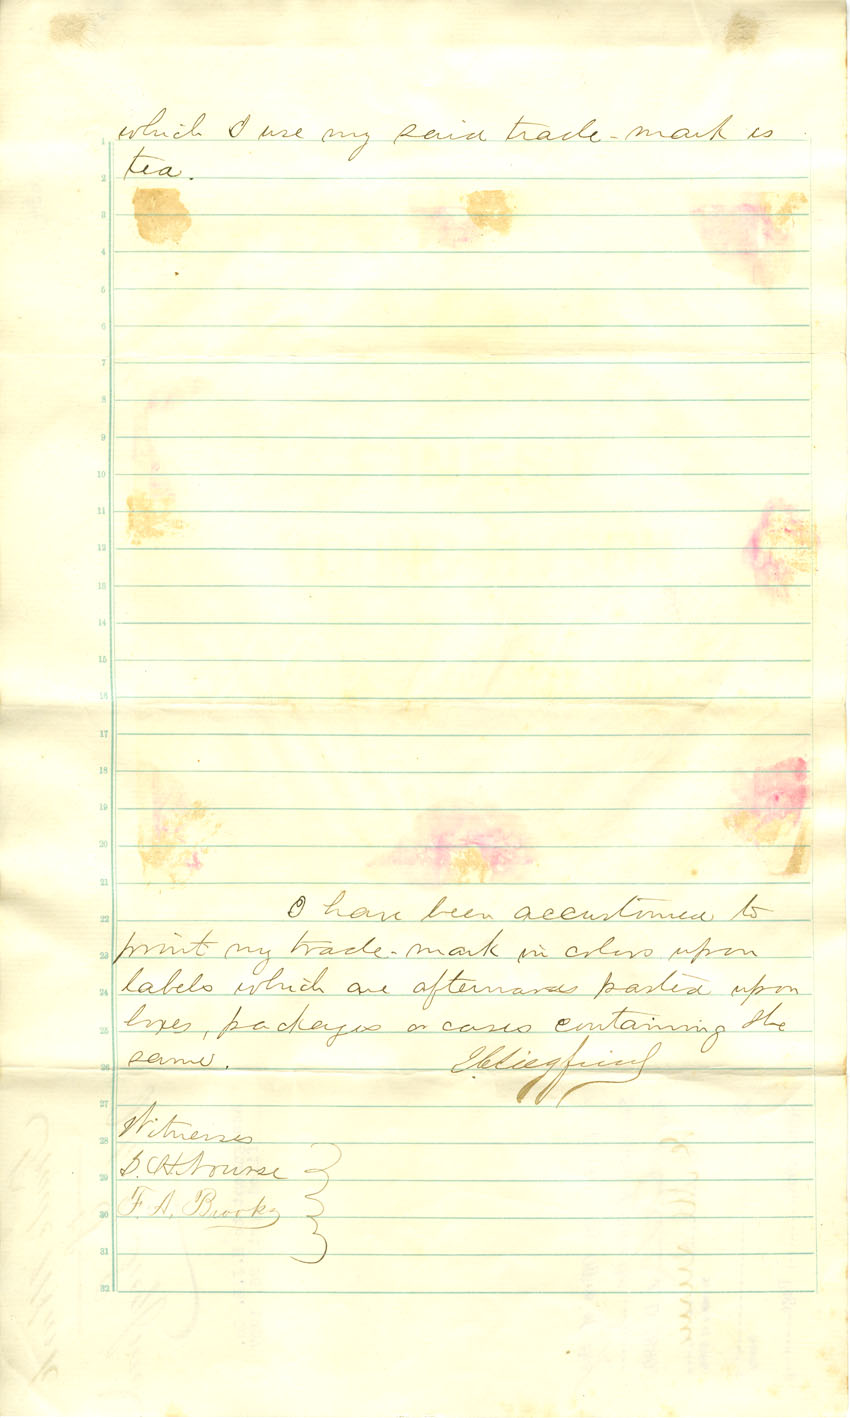 which I use my said trade-mark is
tea.
I have been accustomed to
print my trade-mark in colors upon
labels which are afterwards pasted upon
boxes, packages or cases containing the
same.
Siegfried
Witnesses
F. A. Brooks
1
2
3
4
5
6
7
8
9
10
11
12
13
14
15
16
17
18
19
20
21
22
23
24
25
26
27
28
29
30
31
32